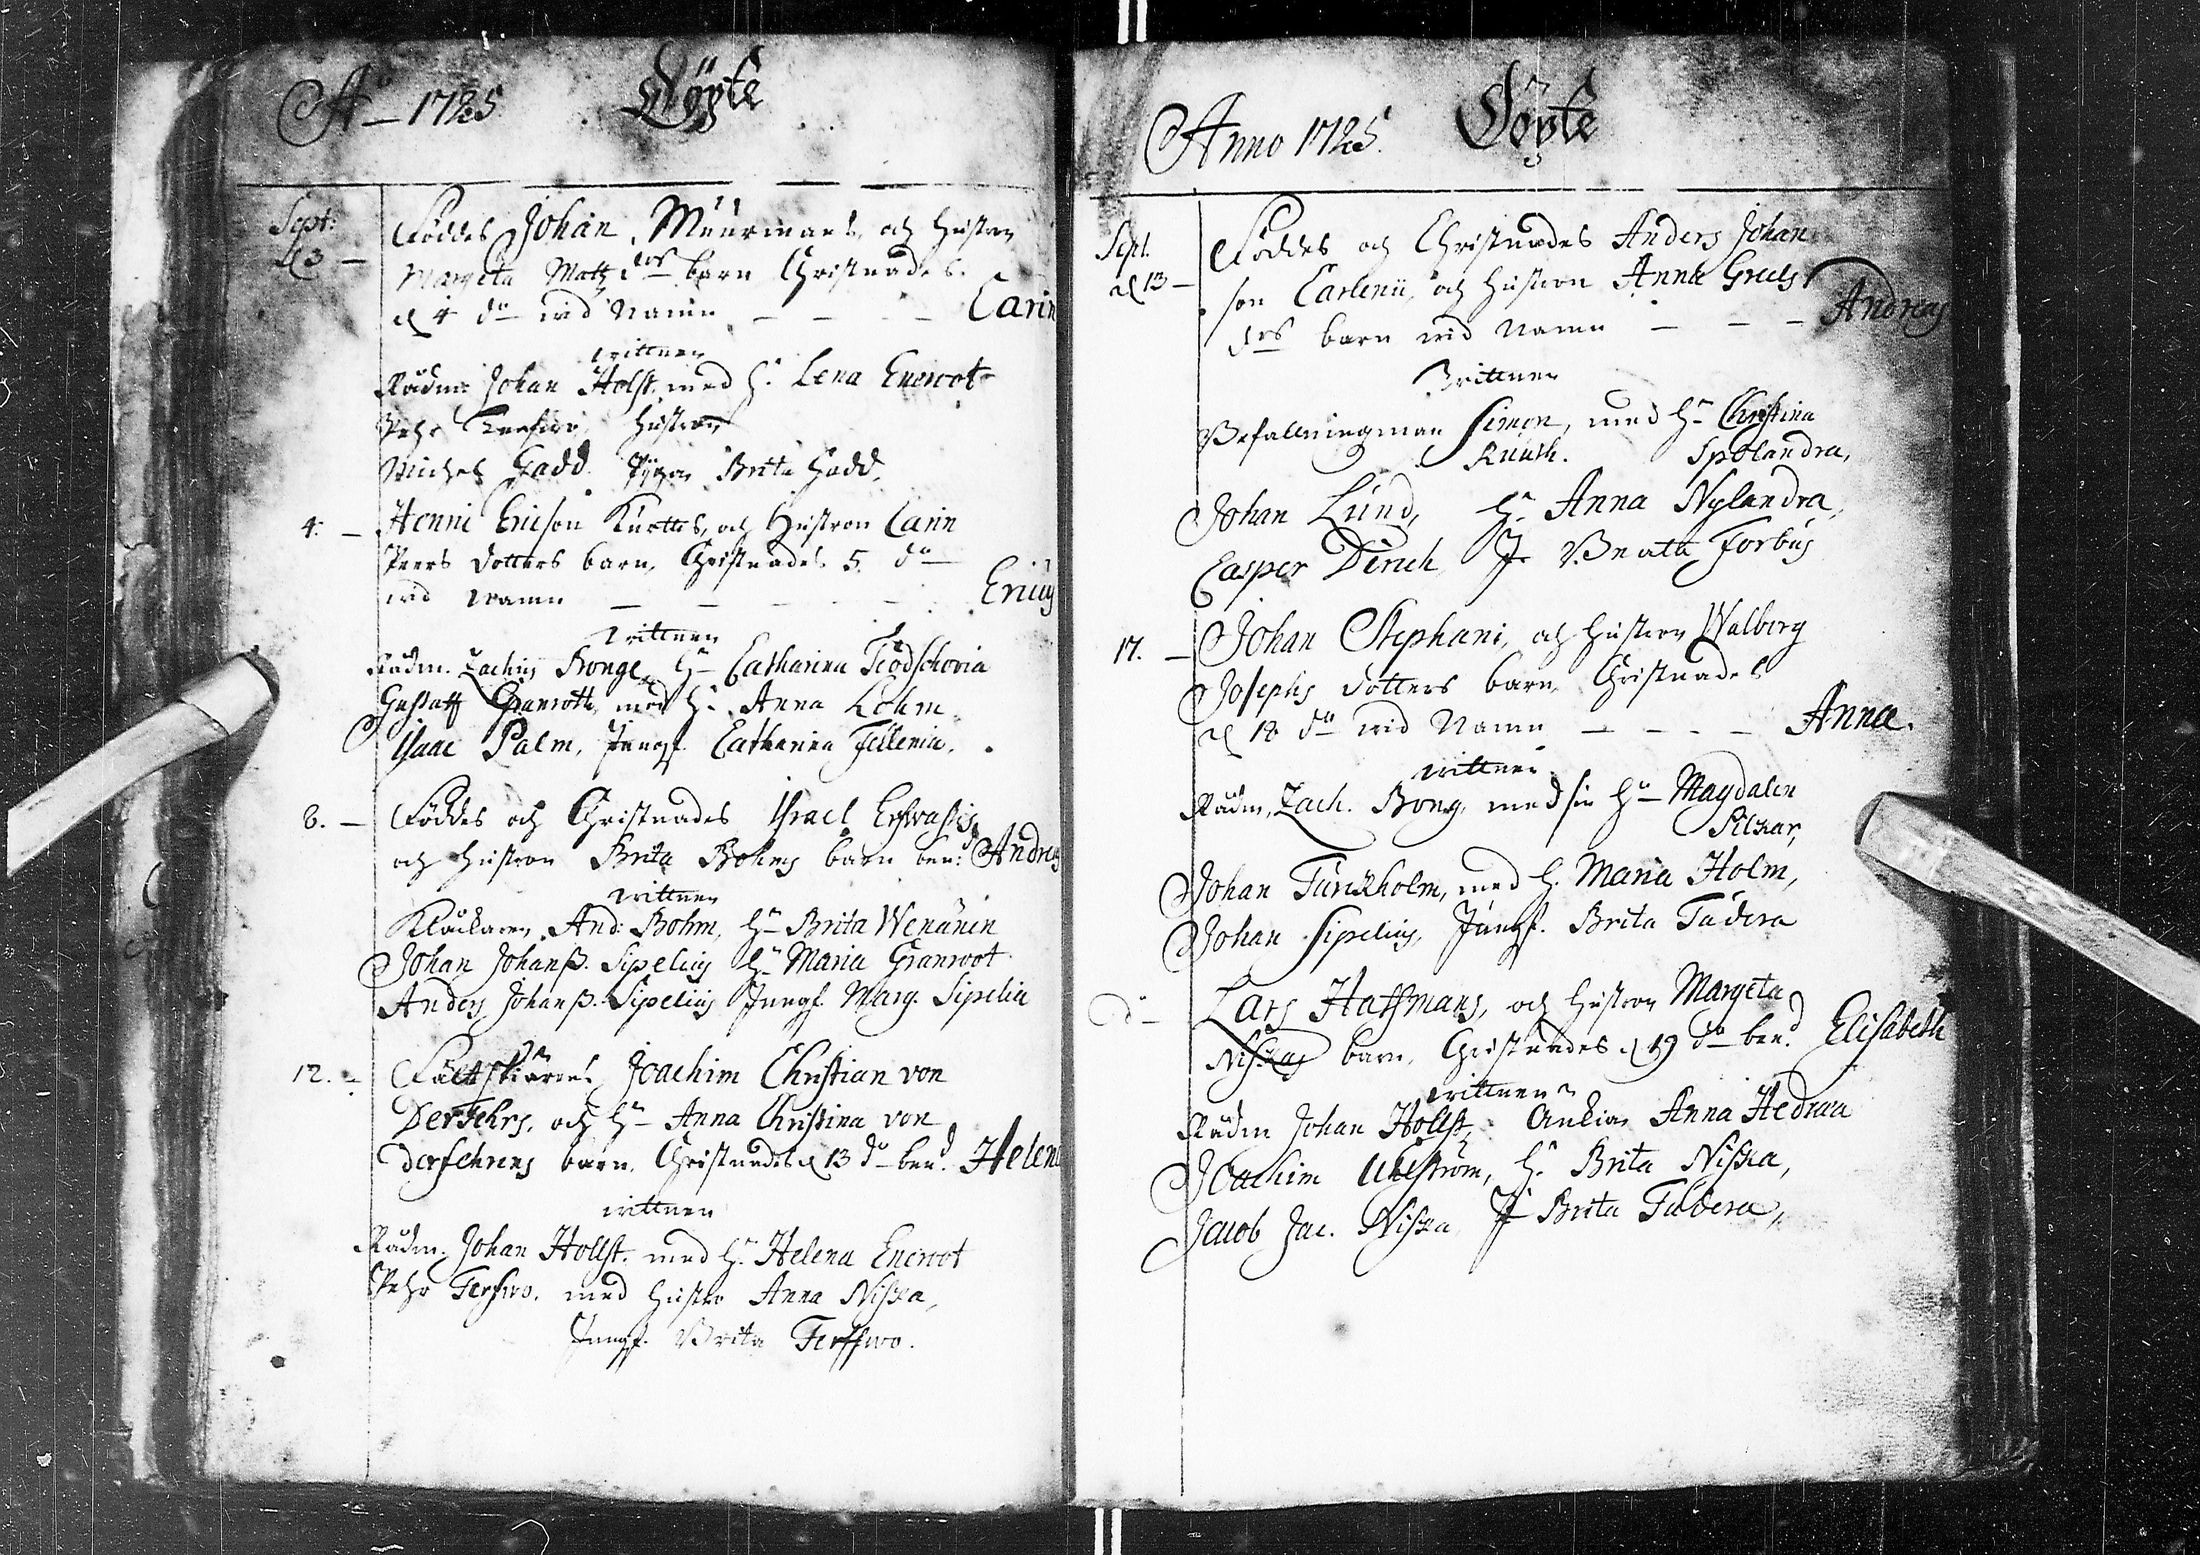 Ao 1725 Döpte
Sept:
d 3 — Föddes Johan Muurmans och hustru
Margeta Matz drs barn Christnades
d 4 do wid Namn — — — Carin
wittnen
Rådm: Johan Holst, med h: Lena Enewot
Pehr hustru
Michel Gadd. Pigan Brita Gadd.
4. — Henric Ericson Kurttes, och hustron Carin
Peers dotters barn, Christnades 5. do
wid namn — — — — Ericus
wittnen
Rådm. Zachris Bonge, hu Catharina
Gustaff Granroth, med h: Anna Bohm
Isaac Palm, Jungf. Catharina
8. — Föddes och Christnades Israel
och hustron Brita Bohms barn ben: Andreas
wittnen
Klåckaren And: Bohm, hu Brita Wenänin
Johan Johanß. Sipelius hu Maria Granroot
Anders Johanß. Sipelius Jungf. Marg. Sipelia
12. — Fältskiären Joachim Christian von
Derfehrs, och hu Anna Christina von
Derfehrens barn, Christnades d 13 do ben:d Helena
wittnen
Rådm. Johan Hollst. med h: Helena Enewot
Pehr Terfwo. med hustro Anna Niska,
Jungf. Brita Terffwo.
Anno 1725. Döpte
Sept.
d 13 — Föddes och Christnades Anders Johan
son Carlenii, och hustron Anna Greels
drs barn wid Namn — — — Andreas
Wittnen
Befallningman Simon, med hu Christina
Ruuth. Spolandra,
Johan Lund, hu Anna Nylandra,
Casper Derich J: Beata Forbus
17. — Johan Stephani, och hustron Walborg
Josephs dotters barn, Christnades
d 18 do wid Namn — — — — Anna.
wittnen
Rådm, Zach. Bong, med sin hu Magdalen
Pilkar,
Johan Turckholm, med h. Maria Holm,
Johan Sipelius, Jungf. Brita Tudera
do — Lars Haffmans, och hustron Margeta
Niskas barn, Christnades d 19 do ben:d Elisabeth
wittnen
Rådm Johan Hollst, Änkian Anna Hedraa
Joachim Uhlström, hu Brita Niska,
Jacob Jac. Niska J: Brita Tudera,